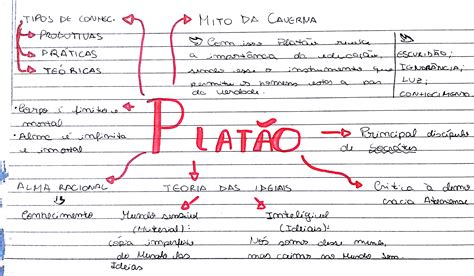 TIPOS DE CONHEC.
PRODUTIVAS
PRÁTICAS
TEÓRICAS
MITO DA CAVERNA
Com isso Platão revela
a importância da educação,
sendo esse o instrumento que
permite o homem estar a par
da verdade.
ESCURIDÃO;
IGNORÂNCIA;
LUZ;
CONHECIMENTO.
• Corpo é finito e
mortal
• Alma é infinita
e imortal
PLATÃO
Principal discípulo
de Sócrates
ALMA RACIONAL
Conhecimento
TEORIA DAS IDEIAIS
Mundo sensível
(Material):
cópia imperfeita
do Mundo das
Ideias
Inteligível
(Ideias):
Nós somos desse mundo,
mas caimos no Mundo Sem.
Critica à demo
cracia Ateniense